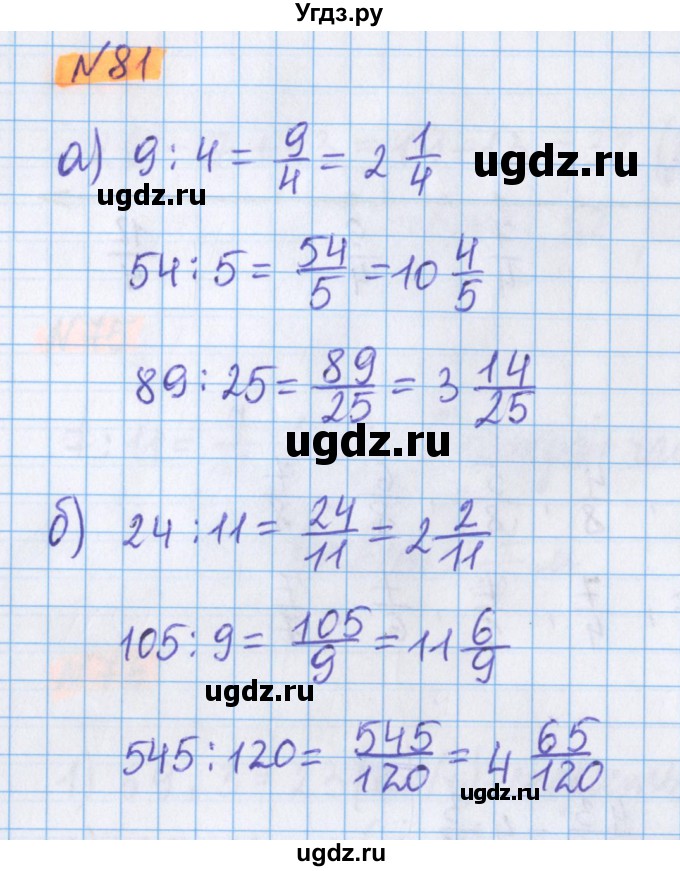 Угдз.ру
№81
а) 9 : 4 = 9/4 = 2 1/4
ugdz.ru
ugdz.ru
54 : 5 = 54/5 = 10 4/5
89 : 25 = 89/25 = 3 14/25
ugdz.ru
б) 24 : 11 = 24/11 = 2 2/11
105 : 9 = 105/9 = 11 6/9
ugdz.ru
545 : 120 = 545/120 = 4 65/120
ugdz.ru
ugdz.ru